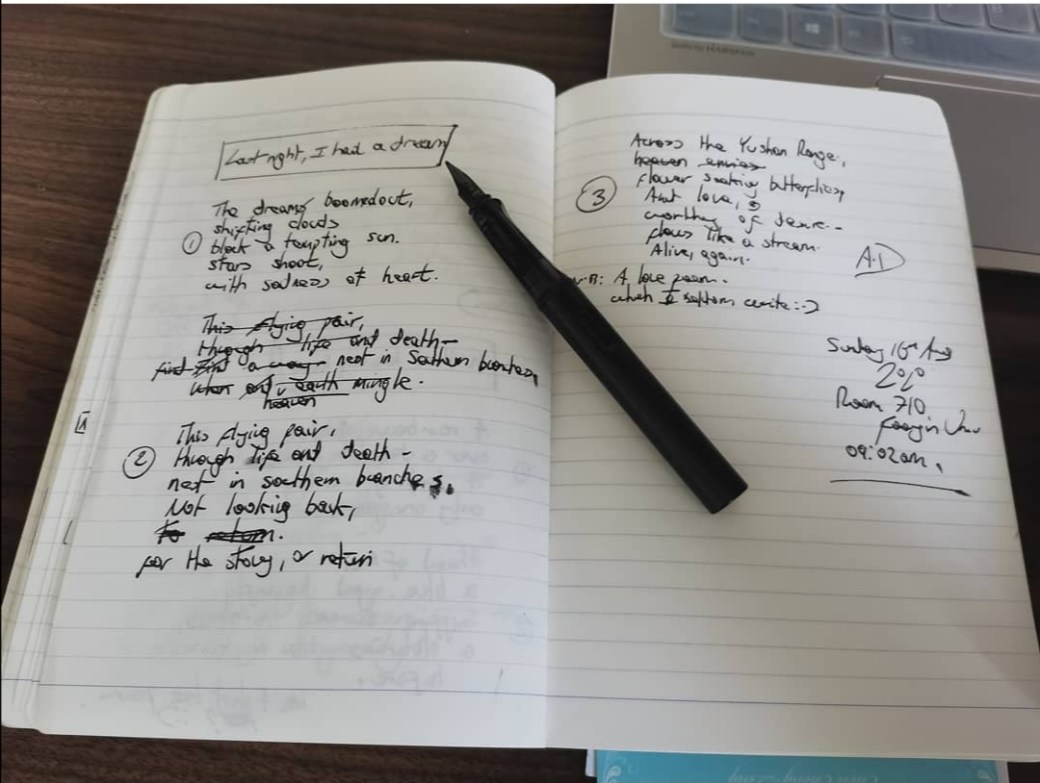 Last night, I had a dream
The dreams boomed out,
shifting clouds
① block a tempting sun.
stars shoot,
with sadness of heart.
This flying pair,
through life and death-
find a way nest in Southern branches,
when and earth mingle.
heaven
This flying pair,
② through life and death -
nest in southern branches.
Not looking back,
To return.
for the story, or return
Across the Yushan Range,
heaven envies
flower seeking butterflies,
③ And love,
worthy of desire--
flows like a stream.
Alive, again.
A.D
N.B: A love poem.
which I seldom write :-)
Sunday 16th Aug
2020
Room 710
Univ
09:02am.